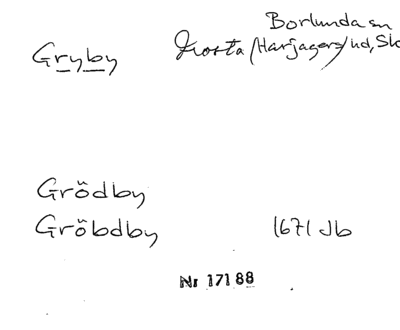 Borlunda sn
Gryby Frosta/Harjagers/hd, Sk
Grödby
Gröbdby 1671 Jb
Nr 17188